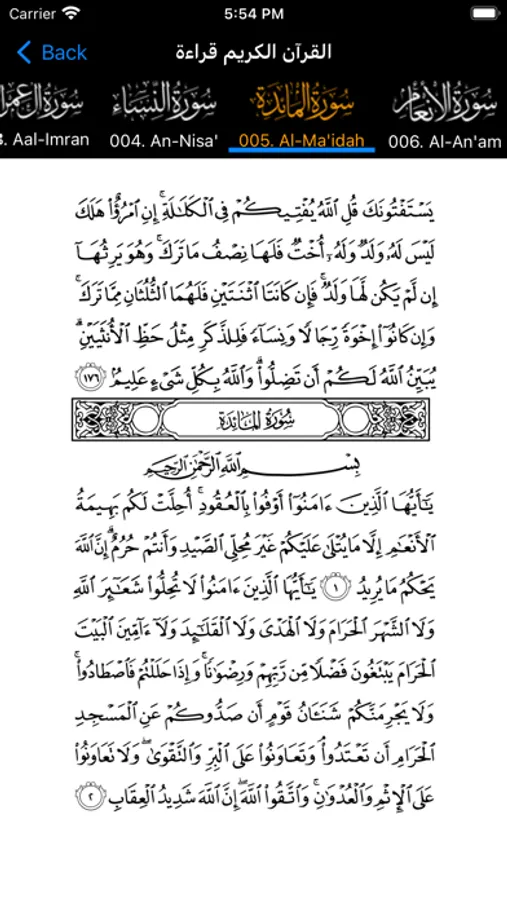 Carrier 5:54 PM
Back القرآن الكريم قراءة
سورة آل عمران سورة النساء سورة المائدة سورة الأنعام
3. Aal-Imran 004. An-Nisa' 005. Al-Ma'idah 006. Al-An'am
يَسْتَفْتُونَكَ قُلِ ٱللَّهُ يُفْتِيكُمْ فِى ٱلْكَلَٰلَةِ ۚ إِنِ ٱمْرُؤٌا۟ هَلَكَ
لَيْسَ لَهُۥ وَلَدٌ وَلَهُۥٓ أُخْتٌ فَلَهَا نِصْفُ مَا تَرَكَ ۚ وَهُوَ يَرِثُهَآ
إِن لَّمْ يَكُن لَّهَا وَلَدٌ ۚ فَإِن كَانَتَا ٱثْنَتَيْنِ فَلَهُمَا ٱلثُّلُثَانِ مِمَّا تَرَكَ ۚ
وَإِن كَانُوٓا۟ إِخْوَةً رِّجَالًا وَنِسَآءً فَلِلذَّكَرِ مِثْلُ حَظِّ ٱلْأُنثَيَيْنِ ۗ
يُبَيِّنُ ٱللَّهُ لَكُمْ أَن تَضِلُّوا۟ ۗ وَٱللَّهُ بِكُلِّ شَىْءٍ عَلِيمٌۢ ١٧٦
سُورَةُ المَائِدَةِ
بِسْمِ ٱللَّهِ ٱلرَّحْمَٰنِ ٱلرَّحِيمِ
يَٰٓأَيُّهَا ٱلَّذِينَ ءَامَنُوٓا۟ أَوْفُوا۟ بِٱلْعُقُودِ ۚ أُحِلَّتْ لَكُم بَهِيمَةُ
ٱلْأَنْعَٰمِ إِلَّا مَا يُتْلَىٰ عَلَيْكُمْ غَيْرَ مُحِلِّى ٱلصَّيْدِ وَأَنتُمْ حُرُمٌ ۗ إِنَّ ٱللَّهَ
يَحْكُمُ مَا يُرِيدُ ١ يَٰٓأَيُّهَا ٱلَّذِينَ ءَامَنُوا۟ لَا تُحِلُّوا۟ شَعَٰٓئِرَ ٱللَّهِ
وَلَا ٱلشَّهْرَ ٱلْحَرَامَ وَلَا ٱلْهَدْىَ وَلَا ٱلْقَلَٰٓئِدَ وَلَآ ءَآمِّينَ ٱلْبَيْتَ
ٱلْحَرَامَ يَبْتَغُونَ فَضْلًا مِّن رَّبِّهِمْ وَرِضْوَٰنًا ۚ وَإِذَا حَلَلْتُمْ فَٱصْطَادُوا۟ ۚ
وَلَا يَجْرِمَنَّكُمْ شَنَـَٔانُ قَوْمٍ أَن صَدُّوكُمْ عَنِ ٱلْمَسْجِدِ
ٱلْحَرَامِ أَن تَعْتَدُوا۟ ۘ وَتَعَاوَنُوا۟ عَلَى ٱلْبِرِّ وَٱلتَّقْوَىٰ ۖ وَلَا تَعَاوَنُوا۟
عَلَى ٱلْإِثْمِ وَٱلْعُدْوَٰنِ ۚ وَٱتَّقُوا۟ ٱللَّهَ ۖ إِنَّ ٱللَّهَ شَدِيدُ ٱلْعِقَابِ ٢